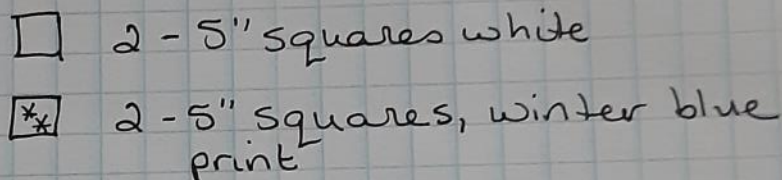 2 - 5" squares white
** 2 - 5" squares, winter blue
print